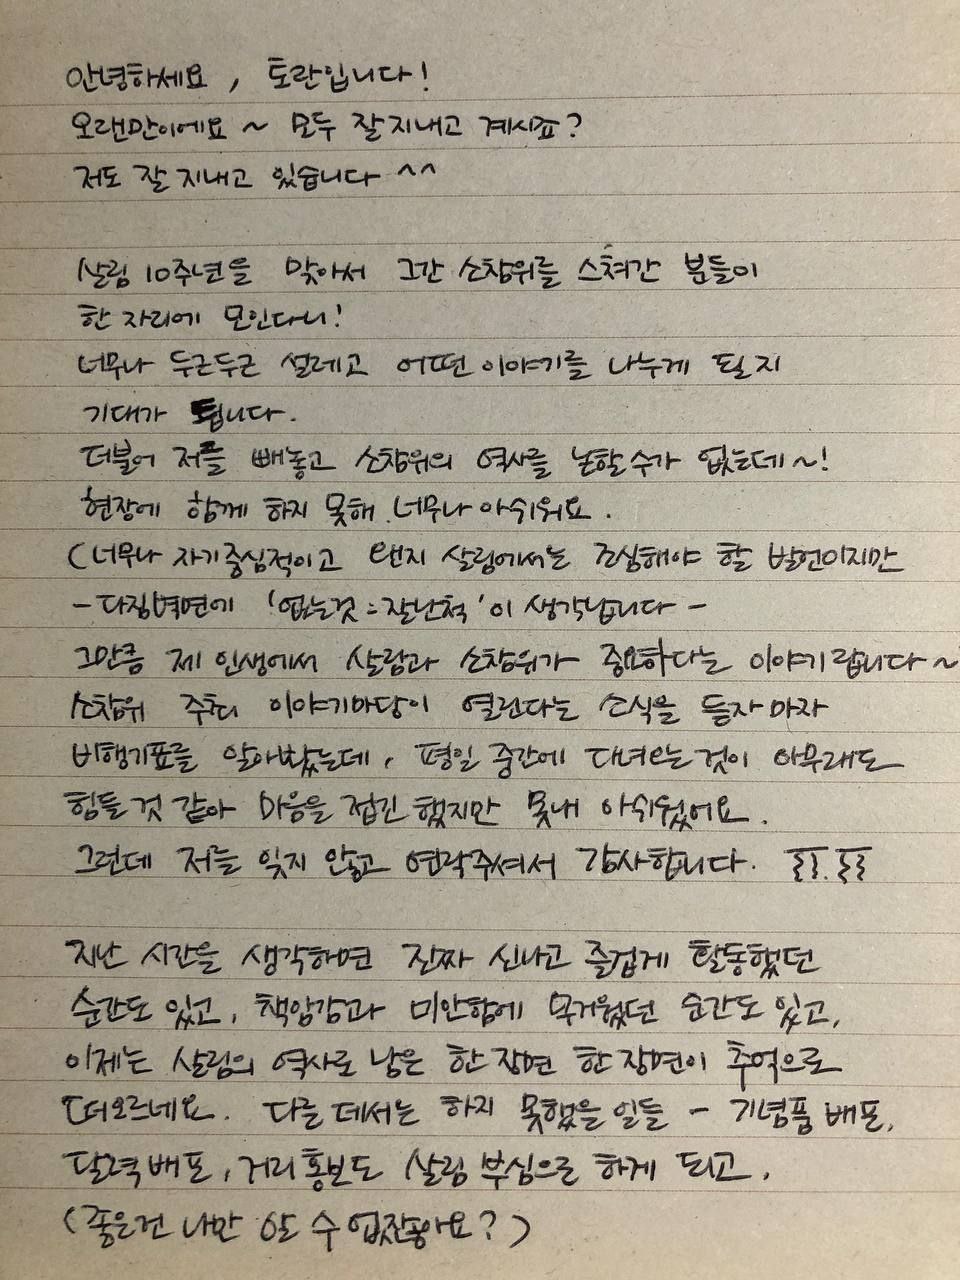 안녕하세요, 토란입니다!
오랜만이에요~ 모두 잘 지내고 계시죠?
저도 잘 지내고 있습니다 ^^
살림 10주년을 맞아서 그간 소참위를 스쳐간 분들이
한 자리에 모인다니!
너무나 두근두근 설레고 어떤 이야기를 나누게 될지
기대가 됩니다.
더불어 저를 빼놓고 소참위의 역사를 논할 수가 없는데~!
현장에 함께 하지 못해 너무나 아쉬워요.
(너무나 자기중심적이고 왠지 살림에서는 조심해야 할 발언이지만
- 다짐벽면에 '없는것 = 잘난척'이 생각납니다 -
그만큼 제 인생에서 살림과 소참위가 중요하다는 이야기랍니다~
소참위 주최 이야기마당이 열린다는 소식을 듣자마자
비행기표를 알아봤는데, 평일 중간에 다녀오는 것이 아무래도
힘들 것 같아 마음을 접긴 했지만 못내 아쉬웠어요.
그런데 저를 잊지 않고 연락주셔서 감사합니다. ㅠㅠ.ㅠㅠ
지난 시간을 생각하면 진짜 신나고 즐겁게 활동했던
순간도 있고, 책임감과 미안함에 무거웠던 순간도 있고,
이제는 살림의 역사로 남은 한 장면 한 장면이 추억으로
떠오르네요. 다른 데서는 하지 못했을 일들 - 기념품 배포,
달력 배포, 거리홍보도 살림 부심으로 하게 되고,
(좋은건 나만 알 수 없잖아요?)